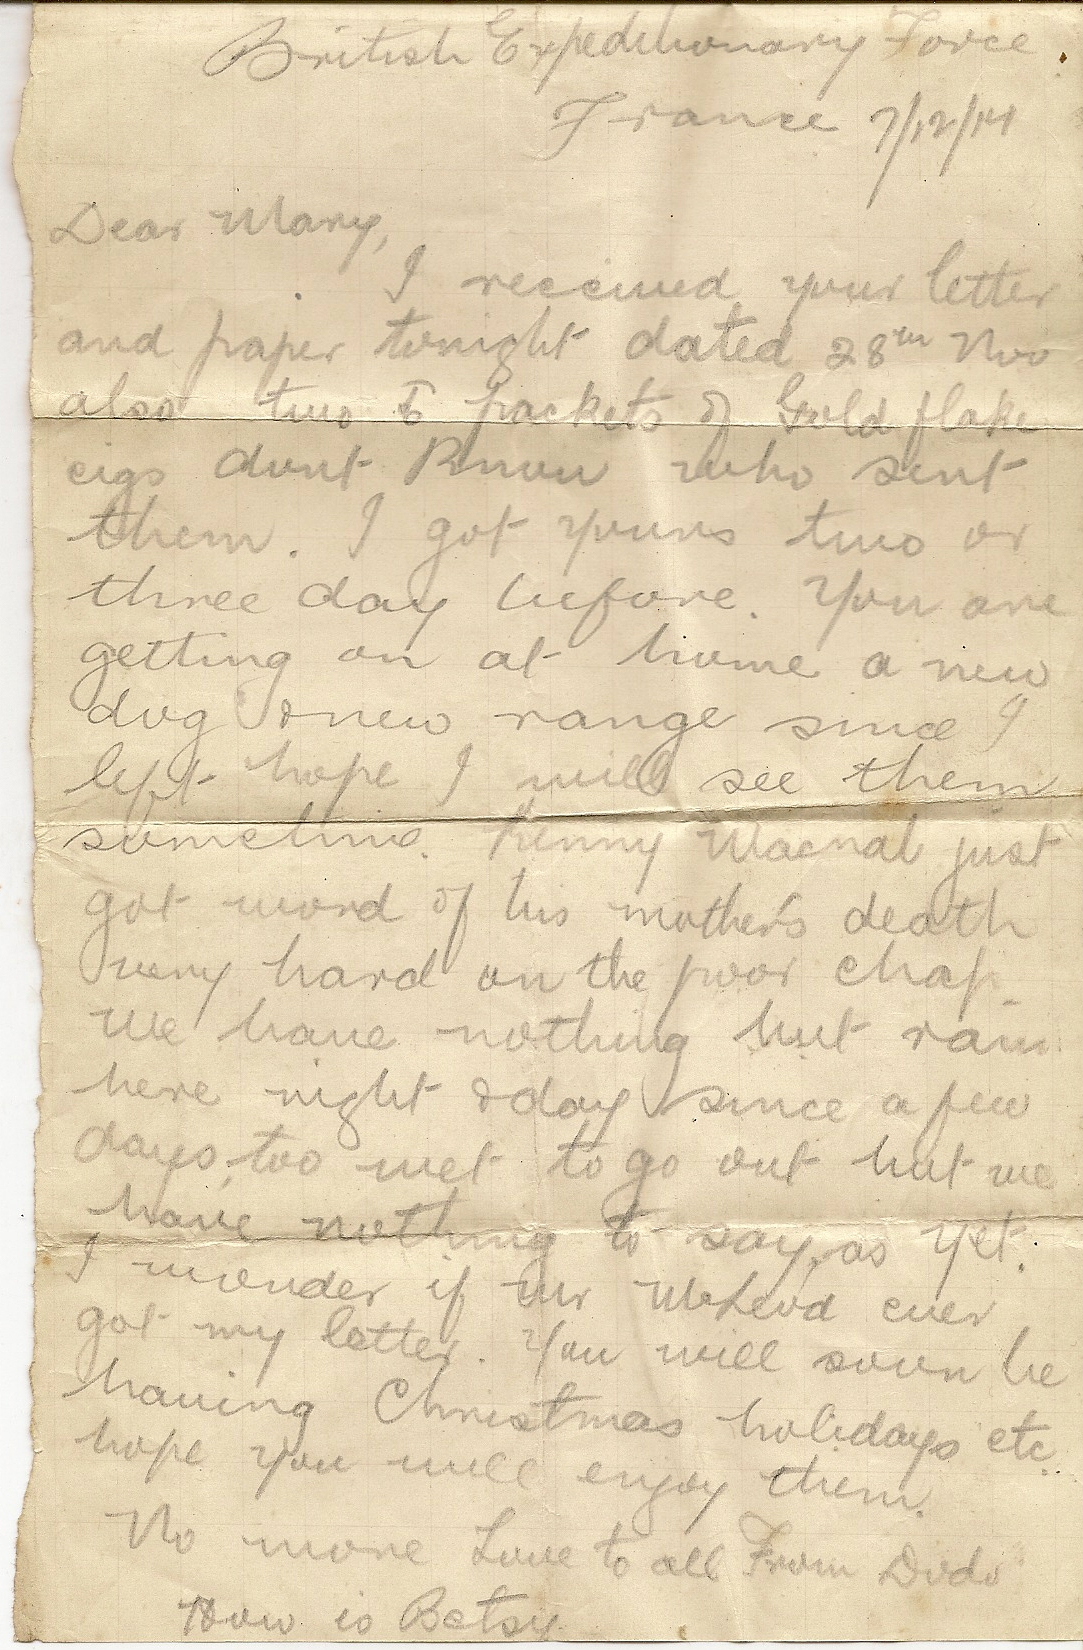 British Expeditionary Force
France 7/12/14
Dear Mary,
I received your letter
and paper tonight dated 28th Nov
also two 5 packets of Gold flake
cigs dont know who sent
them. I got yours two or
three day before. You are
getting on at home a new
dog & new range since I
left hope I will see them
sometime. Kenny Macnab just
got word of his mother's death
very hard on the poor chap.
We have nothing but rain
here night & day since a few
days, too wet to go out but we
have nothing to say, as yet.
I wonder if Mr McLeod ever
got my letter. You will soon be
having Christmas holidays etc.
hope you will enjoy them.
No more Love to all From Dodo
How is Betsy